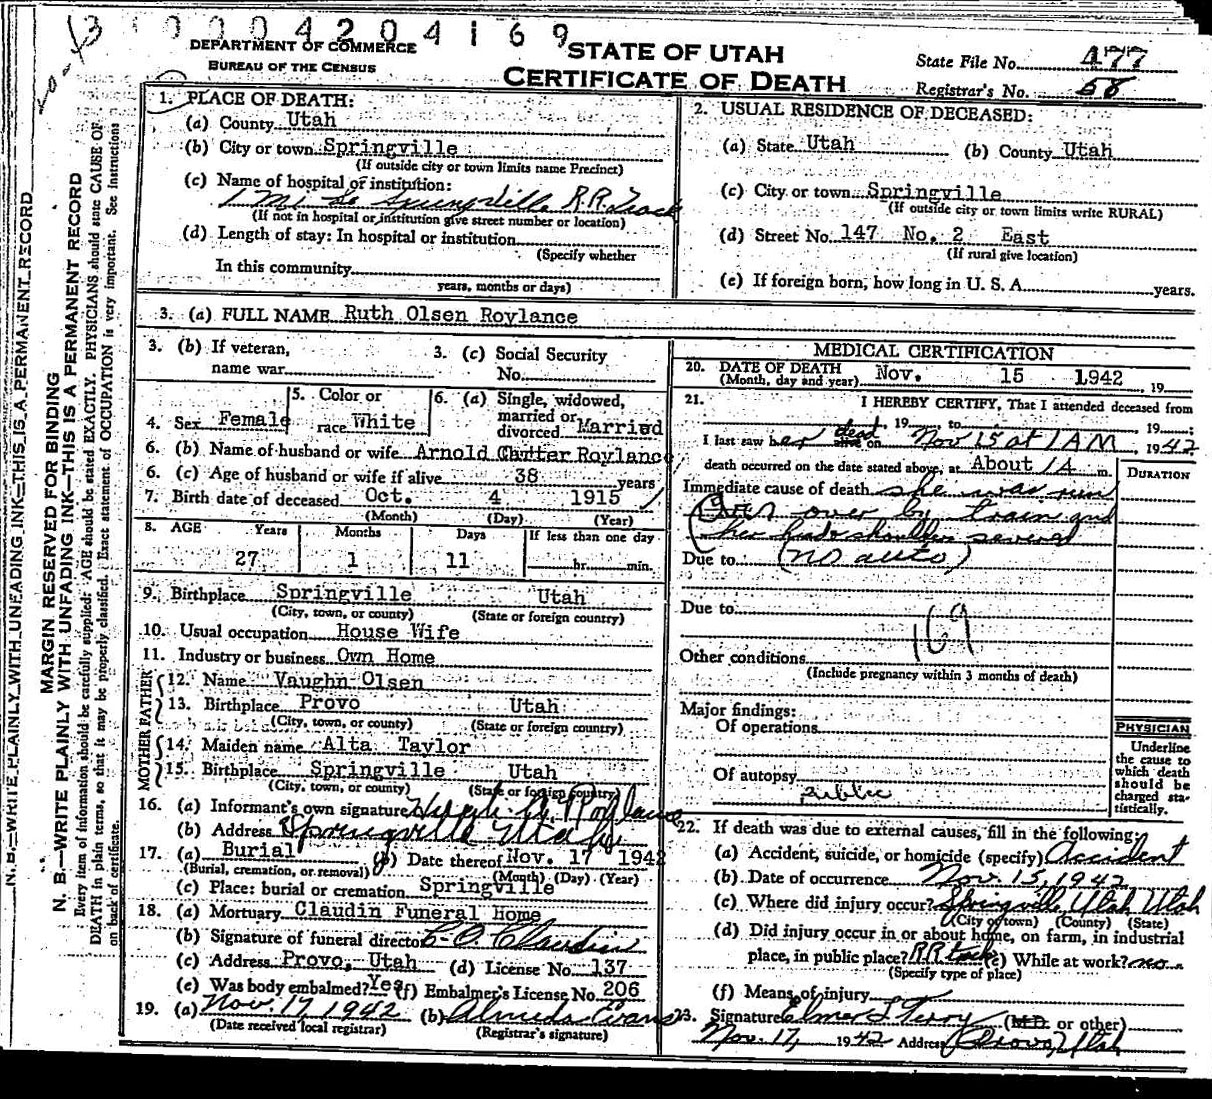 0004204169
DEPARTMENT OF COMMERCE
BUREAU OF THE CENSUS
STATE OF UTAH
CERTIFICATE OF DEATH
State File No. 477
Registrar's No. 58
MARGIN RESERVED FOR BINDING
N. B.—WRITE PLAINLY WITH UNFADING INK—THIS IS A PERMANENT RECORD
N. B.—WRITE PLAINLY WITH UNFADING INK—THIS IS A PERMANENT RECORD
Every item of information should be carefully supplied. AGE should be stated EXACTLY. PHYSICIANS should state CAUSE OF
DEATH in plain terms, so that it may be properly classified. Exact statement of OCCUPATION is very important. See instructions
on back of certificate.
1. PLACE OF DEATH:
(a) County Utah
(b) City or town Springville
(If outside city or town limits name Precinct)
(c) Name of hospital or institution:
1 Mi So Springville R.R. Track
(If not in hospital or institution give street number or location)
(d) Length of stay: In hospital or institution
(Specify whether
In this community
years, months or days)
2. USUAL RESIDENCE OF DECEASED:
(a) State Utah (b) County Utah
(c) City or town Springville
(If outside city or town limits write RURAL)
(d) Street No. 147 No. 2 East
(If rural give location)
(e) If foreign born, how long in U. S. A. years.
3. (a) FULL NAME Ruth Olsen Roylance
3. (b) If veteran,
name war
3. (c) Social Security
No.
4. Sex Female
5. Color or
race White
6. (a) Single, widowed,
married or
divorced Married
6. (b) Name of husband or wife Arnold Roylance
6. (c) Age of husband or wife if alive 38 years
7. Birth date of deceased Oct. 4 1915
(Month) (Day) (Year)
8. AGE Years Months Days If less than one day
27 1 11 hr. min.
9. Birthplace Springville Utah
(City, town, or county) (State or foreign country)
10. Usual occupation House Wife
11. Industry or business Own Home
FATHER
12. Name Vaughn Olsen
13. Birthplace Provo Utah
(City, town, or county) (State or foreign country)
MOTHER
14. Maiden name Alta Taylor
15. Birthplace Springville Utah
(City, town, or county) (State or foreign country)
16. (a) Informant's own signature Roylance
(b) Address Springville Utah
17. (a) Burial (b) Date thereof Nov. 17 1942
(Burial, cremation, or removal) (Month) (Day) (Year)
(c) Place: burial or cremation Springville
18. (a) Mortuary Claudin Funeral Home
(b) Signature of funeral director C. O. Claudin
(c) Address Provo, Utah (d) License No. 137
(e) Was body embalmed? Yes (f) Embalmer's License No. 206
19. (a) Nov. 17, 1942 (b) Almeda Evans
(Date received local registrar) (Registrar's signature)
MEDICAL CERTIFICATION
20. DATE OF DEATH
(Month, day and year) Nov. 15 1942, 19
21. I HEREBY CERTIFY, That I attended deceased from
, 19 to , 19 ;
I last saw her dead alive on Nov 15 at 1 AM, 1942
death occurred on the date stated above, at About 1 A m.
DURATION
Immediate cause of death she was run
over by train and
her shoulders severed
Due to (no auto)
Due to
169
Other conditions
(Include pregnancy within 3 months of death)
Major findings:
Of operations
Of autopsy
public
PHYSICIAN
Underline
the cause to
which death
should be
charged sta-
tistically.
22. If death was due to external causes, fill in the following:
(a) Accident, suicide, or homicide (specify) Accident
(b) Date of occurrence Nov. 15, 1942
(c) Where did injury occur? Springville Utah Utah
(City or town) (County) (State)
(d) Did injury occur in or about home, on farm, in industrial
place, in public place? RR track (e) While at work? no
(Specify type of place)
(f) Means of injury
23. Signature Elmer L Terry (M.D. or other)
Nov. 17, 1942 Address Provo, Utah